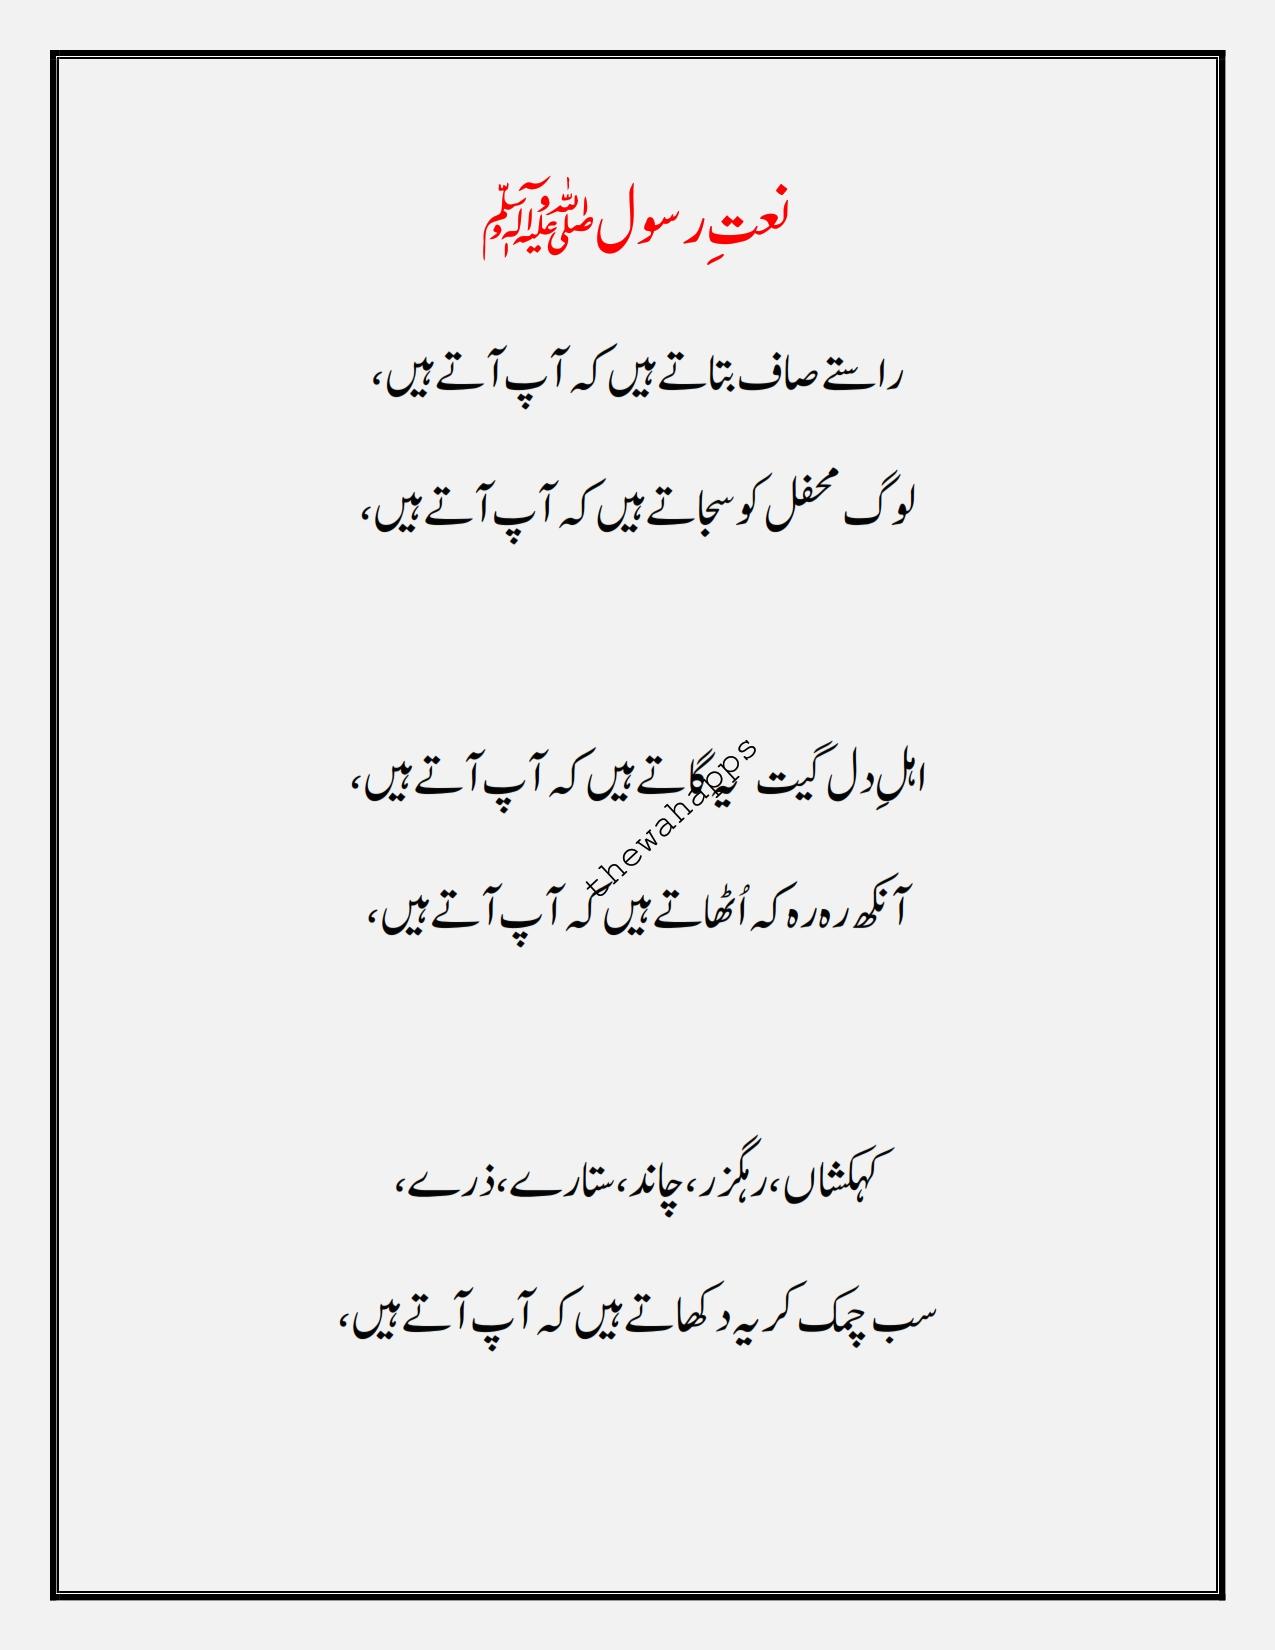 نعتِ رسول ﷺ
راستے صاف بتاتے ہیں کہ آپ آتے ہیں،
لوگ محفل کو سجاتے ہیں کہ آپ آتے ہیں،
اہلِ دل گیت یہ گاتے ہیں کہ آپ آتے ہیں،
thewahapps
آنکھ رہ رہ کہ اُٹھاتے ہیں کہ آپ آتے ہیں،
کہکشاں، رہگزر، چاند، ستارے، ذرے،
سب چمک کر یہ دکھاتے ہیں کہ آپ آتے ہیں،